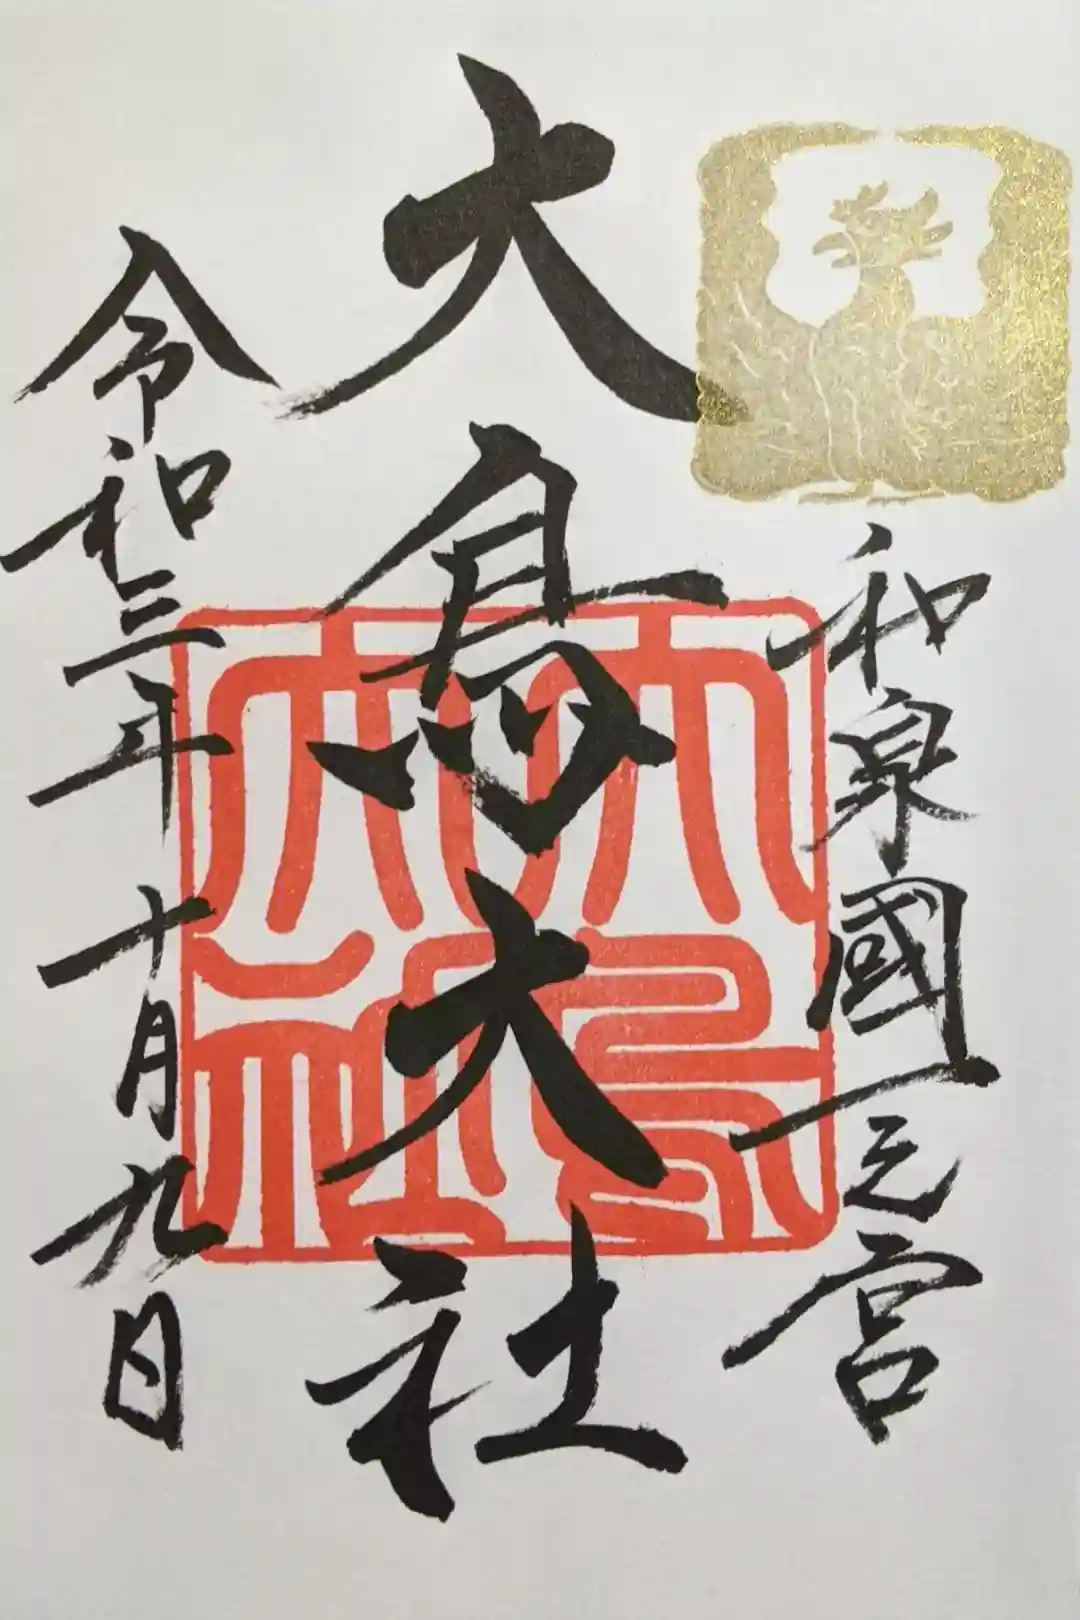 和泉國一之宮
大鳥大社
令和三年十月九日
大鳥大社